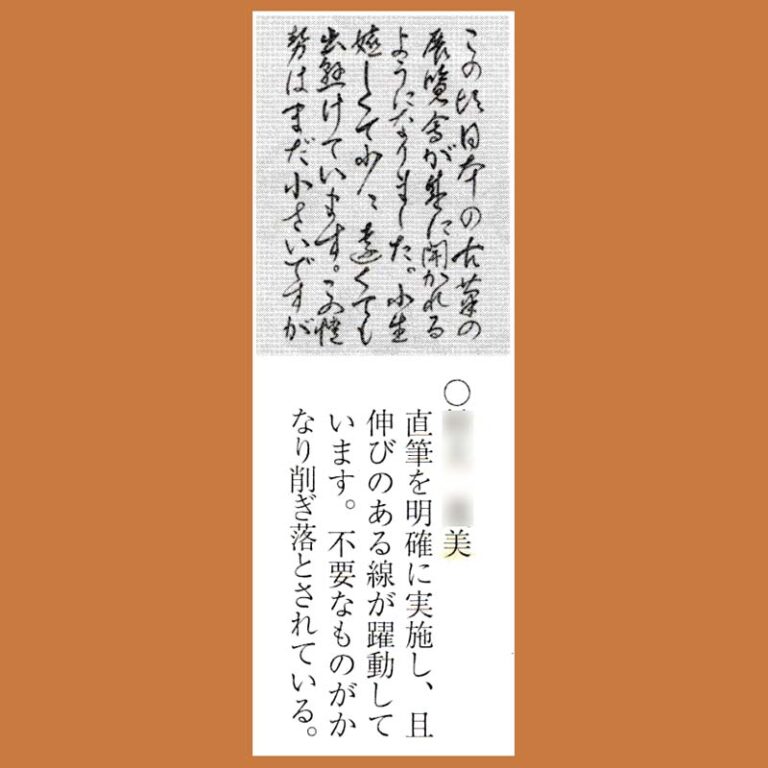 この頃日本の古筆の
展覧会が盛に開かれる
ようになりました。小生
嬉しくて少々遠くても
出懸けています。この
勢はまだ小さいですが
○
美
直筆を明確に実施し、且
伸びのある線が躍動して
います。不要なものがか
なり削ぎ落とされている。